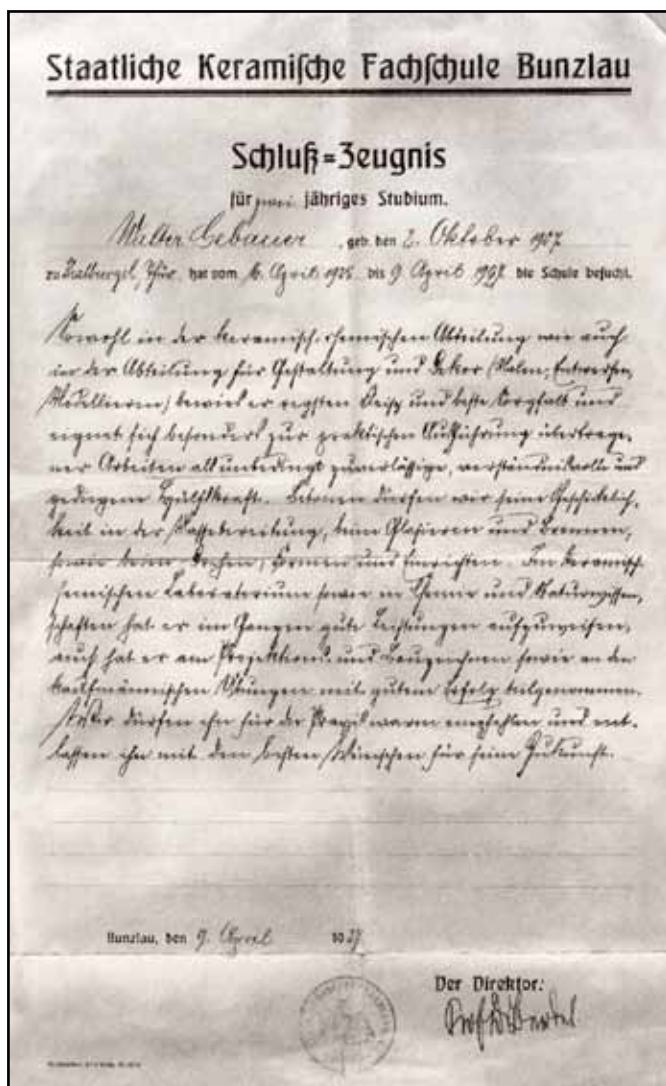 Staatliche Keramische Fachschule Bunzlau
Schluß=Zeugnis
für zwei jähriges Studium.
Walter Gebauer, geb. den 2. Oktober 1907
zu Thalbürgel, Thür. hat vom 6. April 1925 bis 9. April 1927 die Schule besucht.
Sowohl in der keramisch-chemischen Abteilung wie auch
in der Abteilung für Gestaltung und Dekor (Malen, Entwerfen,
Modellieren) bewies er regsten Fleiß und beste Sorgfalt und
eignet sich besonders zur praktischen Ausführung übertrage-
ner Arbeiten als unbedingt zuverlässige, verständnisvolle und
gediegene Hülfskraft. Betonen dürfen wir seine Geschicklich-
keit in der Massebereitung, beim Glasieren und Brennen,
sowie beim Drehen, Formen und Einrichten. Im keramisch-
chemischen Laboratorium sowie in Chemie und Naturwissen-
schaften hat er im Ganzen gute Leistungen aufzuweisen,
auch hat er am Projektions- und Bauzeichnen sowie an den
kaufmännischen Übungen mit gutem Erfolg teilgenommen.
Wir dürfen ihn für die Praxis warm empfehlen und ent-
lassen ihn mit den besten Wünschen für seine Zukunft.
Bunzlau, den 9. April 1927
Der Direktor:
Prof. Dr. Bertel